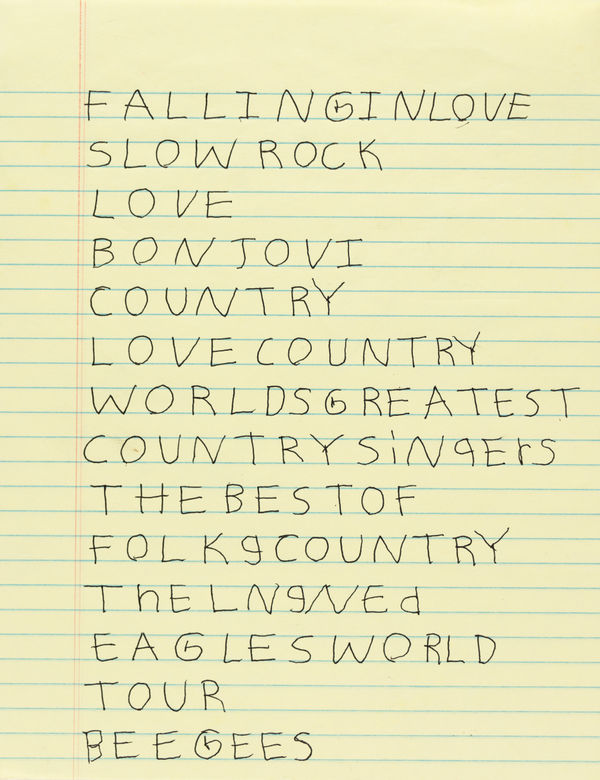 FALLING IN LOVE
SLOW ROCK
LOVE
BON JOVI
COUNTRY
LOVE COUNTRY
WORLDS GREATEST
COUNTRY SiNgErS
THE BEST OF
FOLK g COUNTRY
ThE LNgNEd
EAGLES WORLD
TOUR
BEE GEES